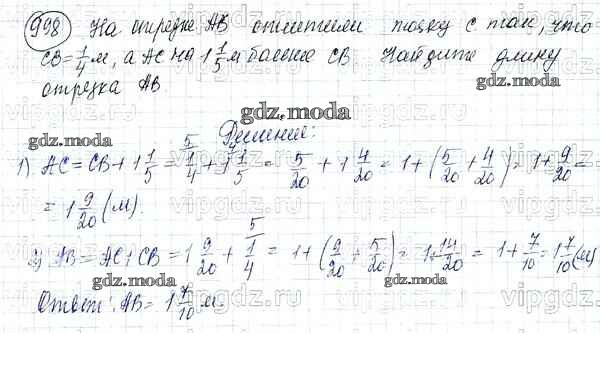 998 На отрезке АВ отметили точку С так, что
СВ = 1/4 м, а АС на 1 1/5 м больше СВ Найдите длину
отрезка АВ
gdz.moda
gdz.moda
Решение:
1) АС = СВ + 1 1/5 = 1/4 + 1 1/5 = 5/20 + 1 4/20 = 1 + (5/20 + 4/20) = 1 + 9/20 =
= 1 9/20 (м).
gdz.moda
2) АВ = АС + СВ = 1 9/20 + 1/4 = 1 + (9/20 + 5/20) = 1 + 14/20 = 1 + 7/10 = 1 7/10 (м)
gdz.moda
Ответ: АВ = 1 7/10 м.
gdz.moda
vipgdz.ru